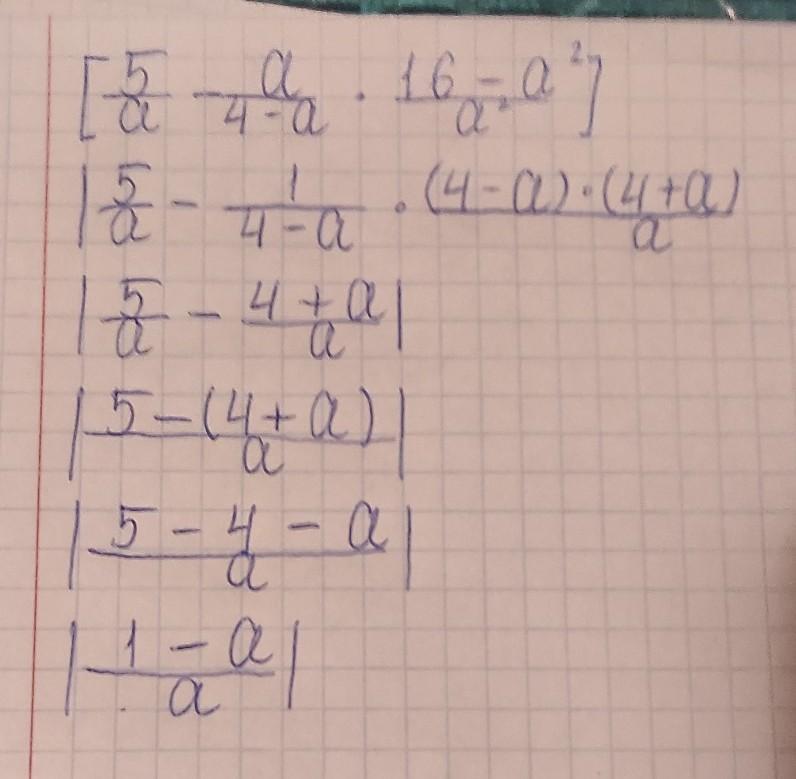 [5/a - a/4-a · 16-a²/a²]
|5/a - 1/4-a · (4-a)·(4+a)/a
|5/a - 4+a/a|
|5-(4+a)/a|
|5-4-a/a|
|1-a/a|